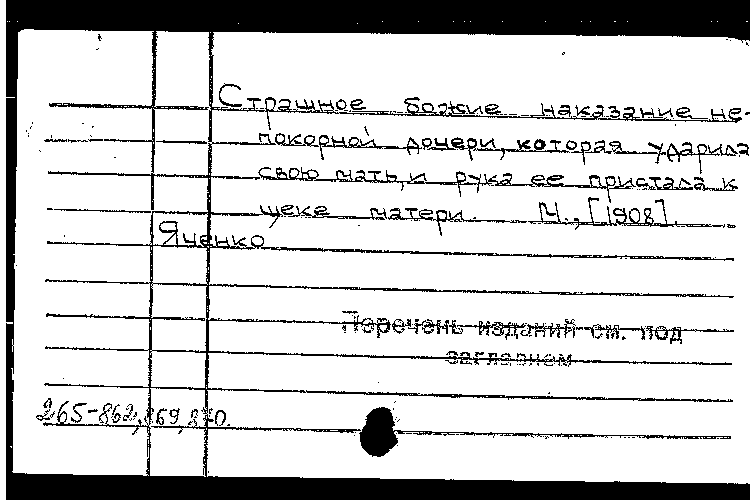 Страшное божие наказание не-
покорной дочери, которая ударила
свою мать, и рука ее пристала к
щеке матери. М., [1908].
Яченко
Перечень изданий см. под
заглавием
265-862,869,870.